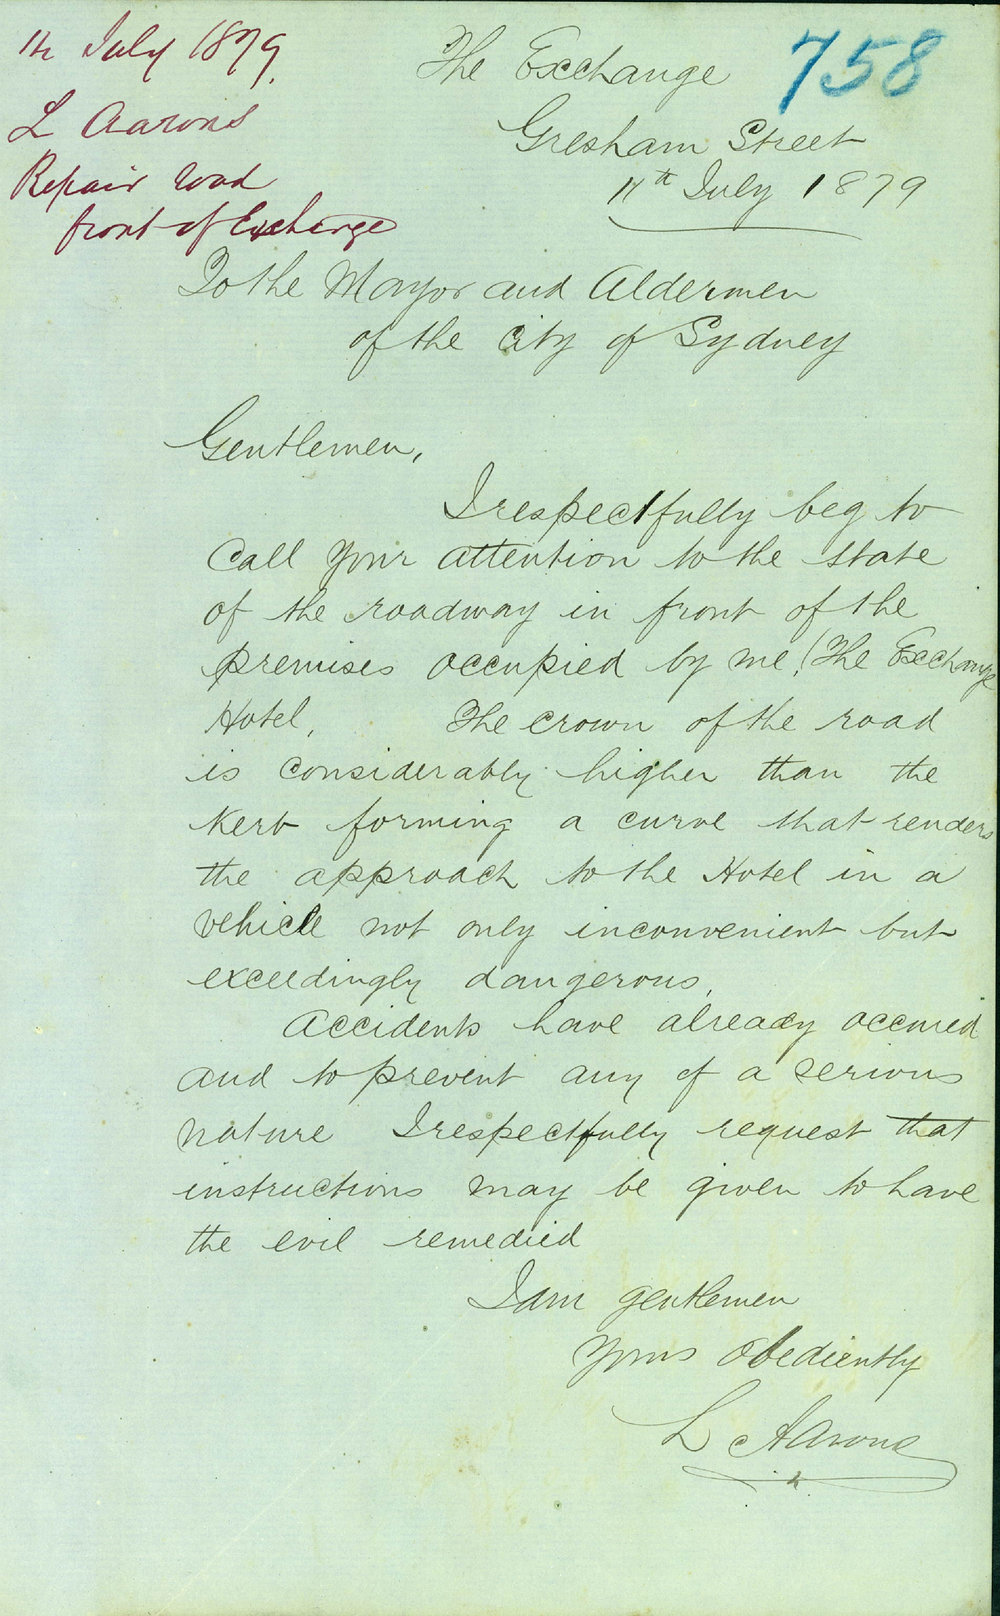 11 July 1879.
L Aarons
Repair road
front of Exchange
758
The Exchange
Gresham Street
11th July 1879
To the Mayor and Aldermen
of the City of Sydney
Gentlemen,
I respectfully beg to
call your attention to the state
of the roadway in front of the
premises occupied by me, (The Exchange
Hotel, The crown of the road
is considerably higher than the
kerb forming a curve that renders
the approach to the Hotel in a
vehicle not only inconvenient but
exceedingly dangerous.
Accidents have already occured
and to prevent any of a serious
nature I respectfully request that
instructions may be given to have
the evil remedied
I am gentlemen
Yours obediently
L Aarons